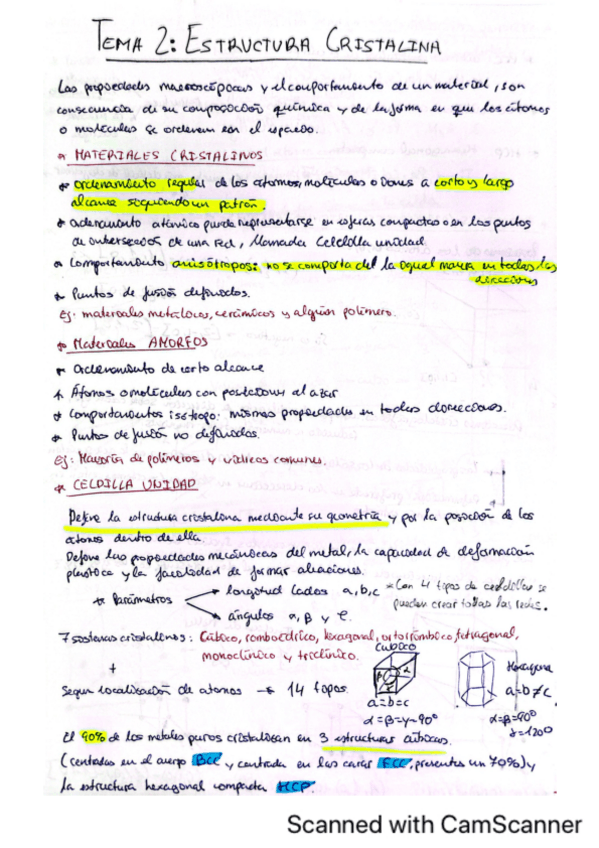 TEMA 2: ESTRUCTURA CRISTALINA
Las propiedades macroscópicas y el comportamiento de un material, son
consecuencia de su composición química y de la forma en que los átomos
o moléculas se ordenan en el espacio.
* MATERIALES CRISTALINOS
* Ordenamiento regular de los átomos, moléculas o iones a corto y largo
alcance siguiendo un patrón.
* ordenamiento atómico puede representarse en esferas compactas o en los puntos
de intersección de una red, llamada celdilla unidad
* Comportamiento anisótropos: no se comporta de la igual manera en todas las
direcciones
* Puntos de fusión definidos.
Ej: materiales metálicos, cerámicos y algún polímero.
* Materiales AMORFOS
* Ordenamiento de corto alcance
* Átomos o moléculas con posiciones al azar
* Comportamientos isótropo: mismas propiedades en todas direcciones.
* Puntos de fusión no definidos.
Ej: Mayoría de polímeros y vidrios comunes.
* CELDILLA UNIDAD
Define la estructura cristalina mediante su geometría y por la posición de los
átomos dentro de ella.
Define las propiedades mecánicas del metal, la capacidad de deformación
plástica y la facilidad de formar aleaciones.
* Parámetros
longitud lados a, b, c
ángulos α, β y
* Con 4 tipos de celdillas se
pueden crear todas las redes.
7 sistemas cristalinos: Cúbico, romboédrico, hexagonal, ortorrómbico, tetragonal,
monoclínico y triclínico.
+
Según localización de átomos → 14 tipos
Cúbico
a=b=c
α=β=γ=90º
Hexagonal
a=b≠c
α=β=90º
γ=120º
El 90% de los metales puros cristalizan en 3 estructuras cúbicas.
(centradas en el cuerpo BCC y centrada en las caras FCC, presentes un 70%) y
la estructura hexagonal compacta HCP.
Scanned with CamScanner